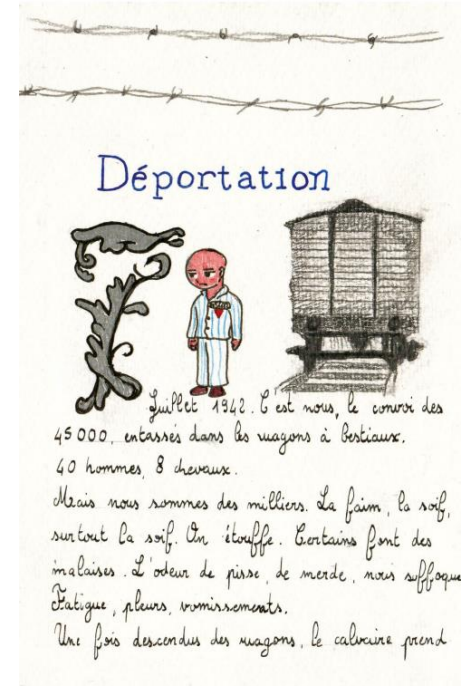 Déportation
Juillet 1942. C'est nous, le convoi des
45000, entassés dans les wagons à bestiaux.
40 hommes, 8 chevaux.
Mais nous sommes des milliers. La faim, la soif,
surtout la soif. On étouffe. Certains font des
malaises. L'odeur de pisse, de merde, nous suffoque
Fatigue, pleurs, vomissements.
Une fois descendus des wagons, le calvaire prend